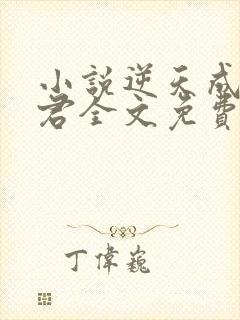 小説逆天成
君全文免費
丁偉巍